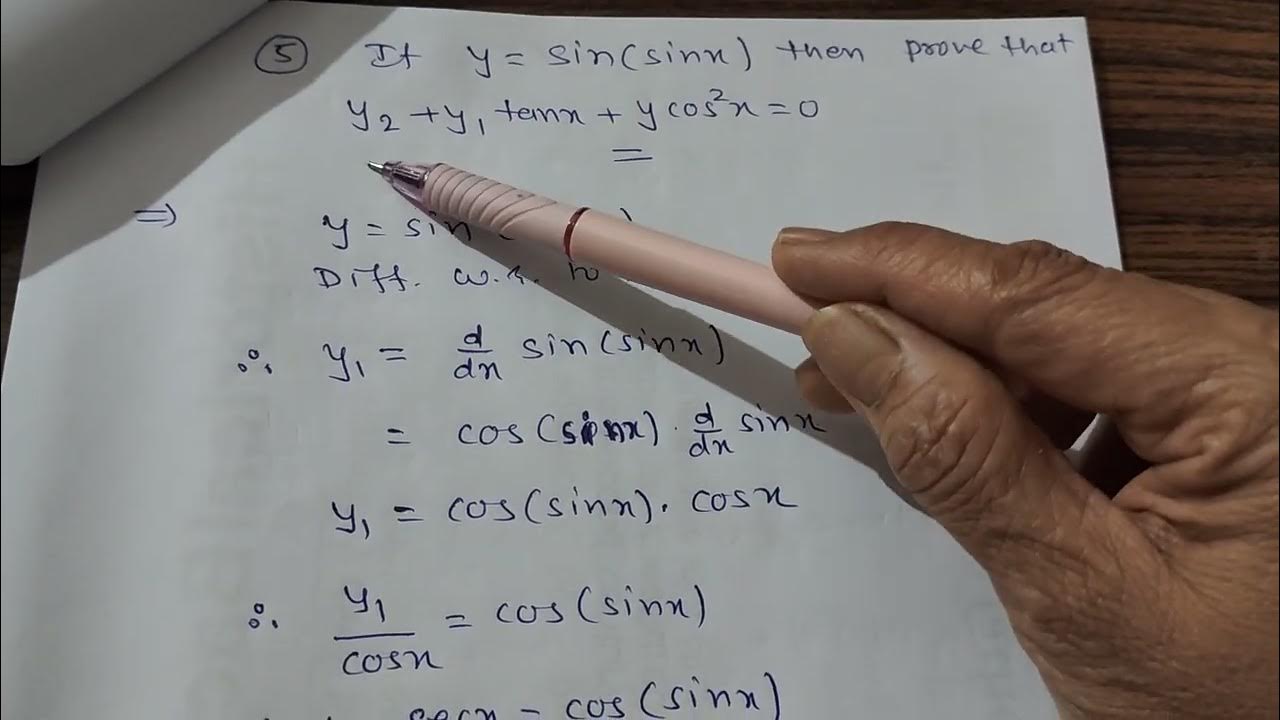 ⑤ If y = sin(sinx) then prove that
y₂ + y₁ tanx + y cos²x = 0
=
⇒ y = sin (
Diff. w.r. to
∴ y₁ = d/dx sin(sinx)
= cos(sinx) · d/dx sinx
y₁ = cos(sinx). cosx
∴ y₁/cosx = cos(sinx)
secx = cos(sinx)